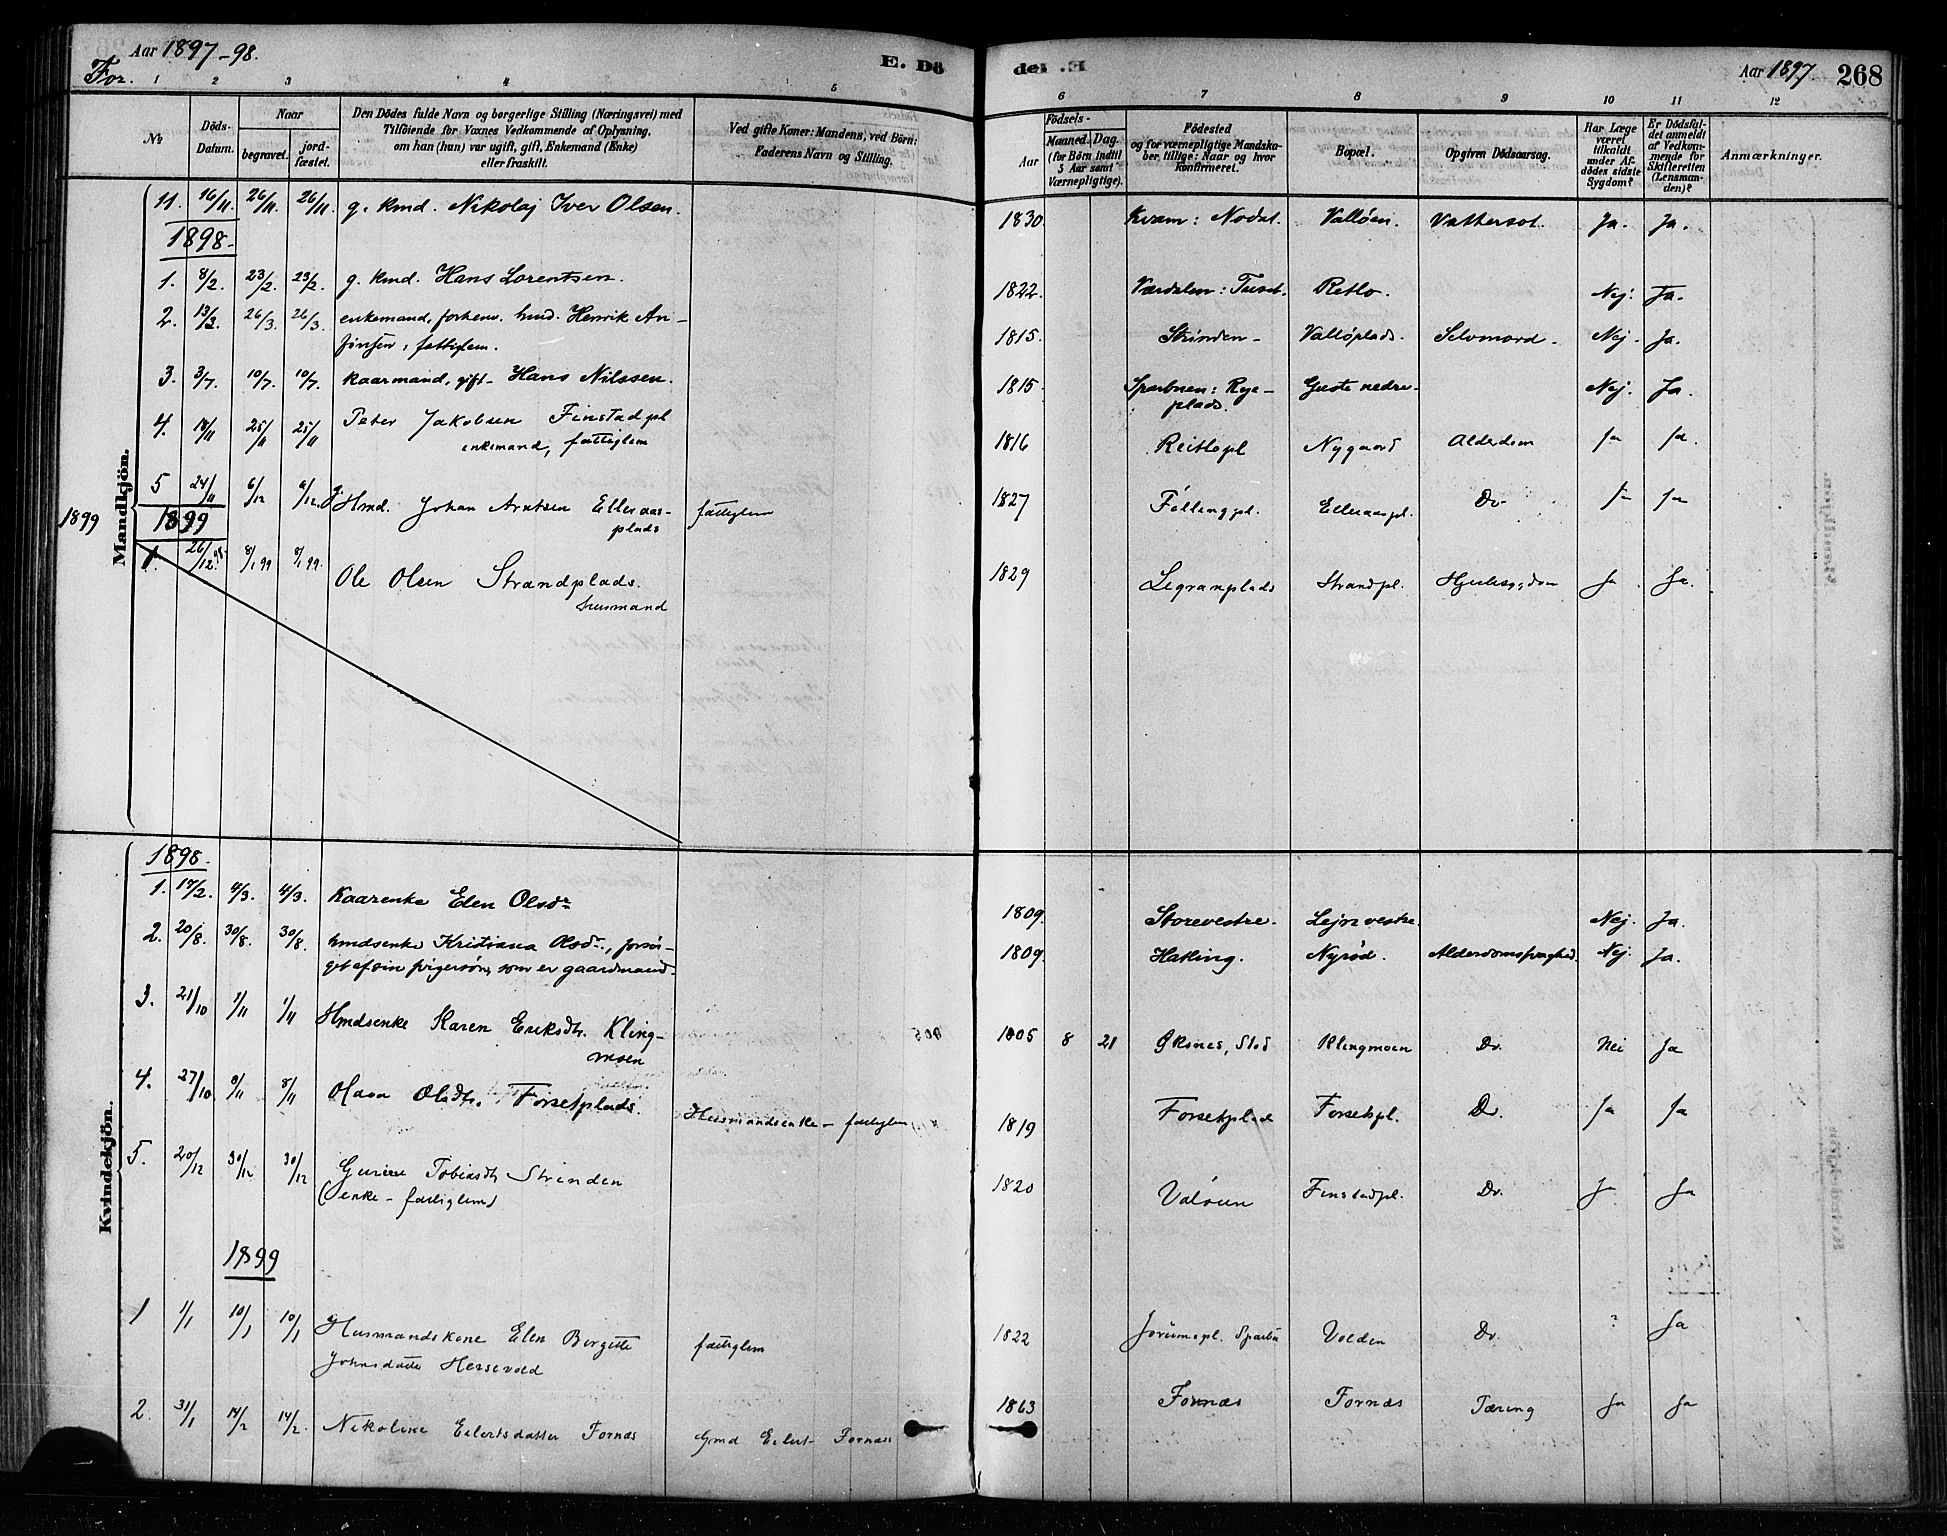 Aar 1897-98.
For.
E. Dö
de.
Aar 1897.
268
1 2 3 4 5 6
6 7 8 9 10 11 12
No
Döds-Datum.
Naar
begravet.
jord-fæstet.
Den Dödes fulde Navn og borgerlige Stilling (Næringsvei) med
Tilföiende for Voxnes Vedkommende af Oplysning,
om han (hun) var ugift, gift, Enkemand (Enke)
eller fraskilt.
Ved gifte Koner: Mandens, ved Börn:
Faderens Navn og Stilling.
Födsels-
Aar
Maaned. Dag.
(for Börn indtil
5 Aar samt
Værnepligtige).
Födested
og for værnepligtige Mandska-
ber, tillige: Naar og hvor
konfirmeret.
Bopæl.
Opgiven Dödsaarsag.
Har Læge
været
tilkaldt
under Af-
dödes sidste
Sygdom?
Er Dödsfal-
det anmeldt
af Vedkom-
mende for
Skifteretten
(Lensman-
den)?
Anmærkninger.
Mandkjön.
11. 16/11 26/11 26/11 g. kmd. Nikolaj Iver Olsen. 1830 Kvam: Nodal. Valløen. Vattersot. Ja. Ja.
1898.
1. 8/2. 23/2. 23/2. g. kmd. Hans Lorentsen. 1822. Værdalen: Retlo. Nej. Ja.
2. 13/3. 26/3. 26/3. enkemand, forhenv. hmd. Henrik An-
fattiglem. 1815. Strinden Valløplads. Selvmord. Nej. Ja.
3. 3/7. 10/7. 10/7. kaarmand, gift Hans Nilssen. 1815 Sparbuen: Rye-
plads. Nej. Ja.
4. 25/11 25/11 Peter Jakobsen Finstadpl
enkemand, fattiglem 1816 Reitlopl Nygaard Alderdom Ja Ja.
5 24/11 6/12 6/12 g. Hmd. Johan Arntsen Elleraas-
plads fattiglem 1827 Føllingpl. Elleraaspl. Do Ja Ja
1899
1899
1. 26/12 98. 8/1 99 8/1 99. Ole Olsen Strandplads.
husmand 1829 Legranplads Strandpl. Ja Ja.
Kvindekjön.
1898.
1. 17/2. 4/3. 4/3. Kaarenke Elen Olsdr 1809. Storevestre. Nej. Ja.
2. 20/8. 30/8. 30/8. hmdsenke Kristiana Olsdr., forsør-
get af sin som er gaardmand. 1809. Hatling. Nyrød. Nej. Ja.
3. 21/10 1/11 1/11 Hmdsenke Karen Eriksdtr. Kling-
moen 1805 8 21 Øksnes, Stod Klingmoen Do. Nei Ja
4. 27/10 8/11 8/11 Olava Olsdtr. Forsetplads. Husmandsenke - fattiglem 1819 Forsetplads Forsetpl. Do. Ja Ja
5. 20/12 30/12 30/12 Gurine Tobiasdtr Strinden
(enke - fattiglem) 1820 Valøen Finstadpl. Do. Ja Ja
1899
1 1/1 10/1 10/1 Husmandskone Elen Bergitte
Johnsdatter fattiglem 1822 Sparbu Volden Do. ? Ja
2. 31/1 14/2 14/2. Nikoline Eilertsdatter Fornæs Gmd Eilert Fornæs 1863 Fornæs Fornæs Tæring Ja Ja